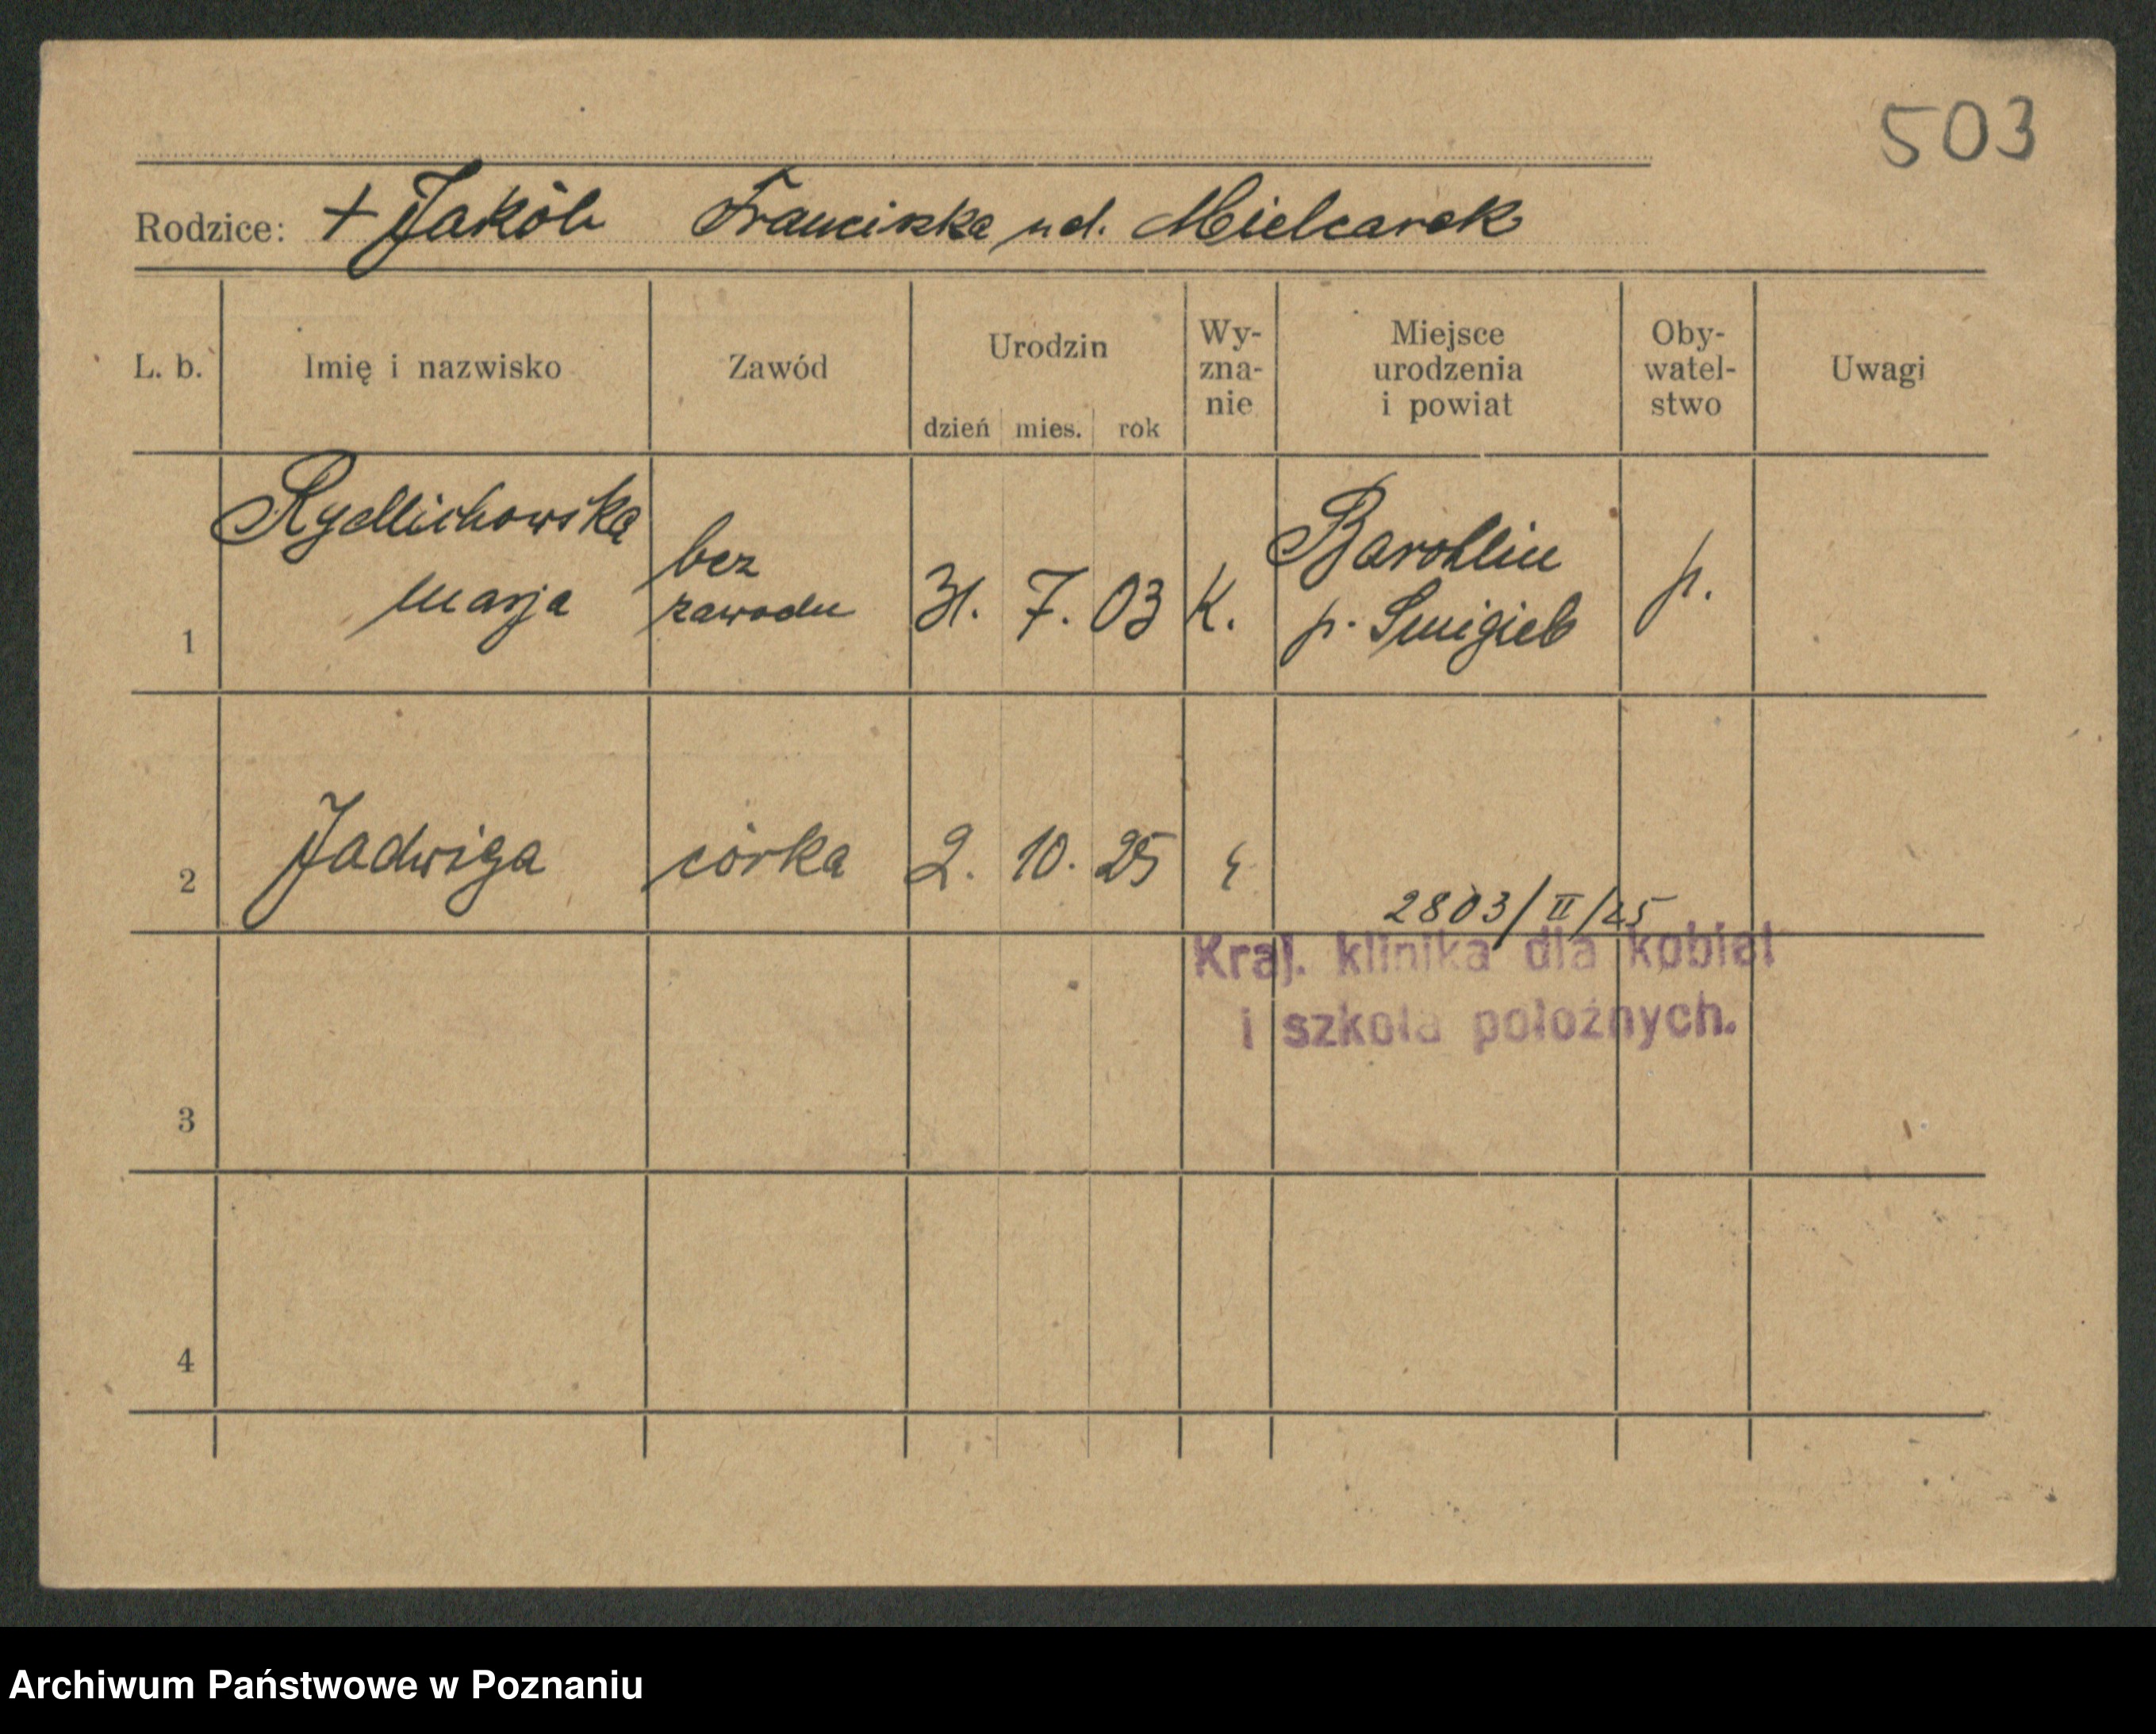 503
Rodzice: + Jakób Franciszka ud. Mielcarek
L. b. Imię i nazwisko Zawód Urodzin dzień mies. rok Wy-zna-nie Miejsce urodzenia i powiat Oby-watel-stwo Uwagi
Rydlichowska
Marja
bez
zawodu
1 31. 7. 03 K.
p.
p. Smigiel
2 Jadwiga córka 2. 10. 25
2803/II/25
Kraj. klinika dla kobiet
i szkoła położnych.
3
4
Archiwum Państwowe w Poznaniu